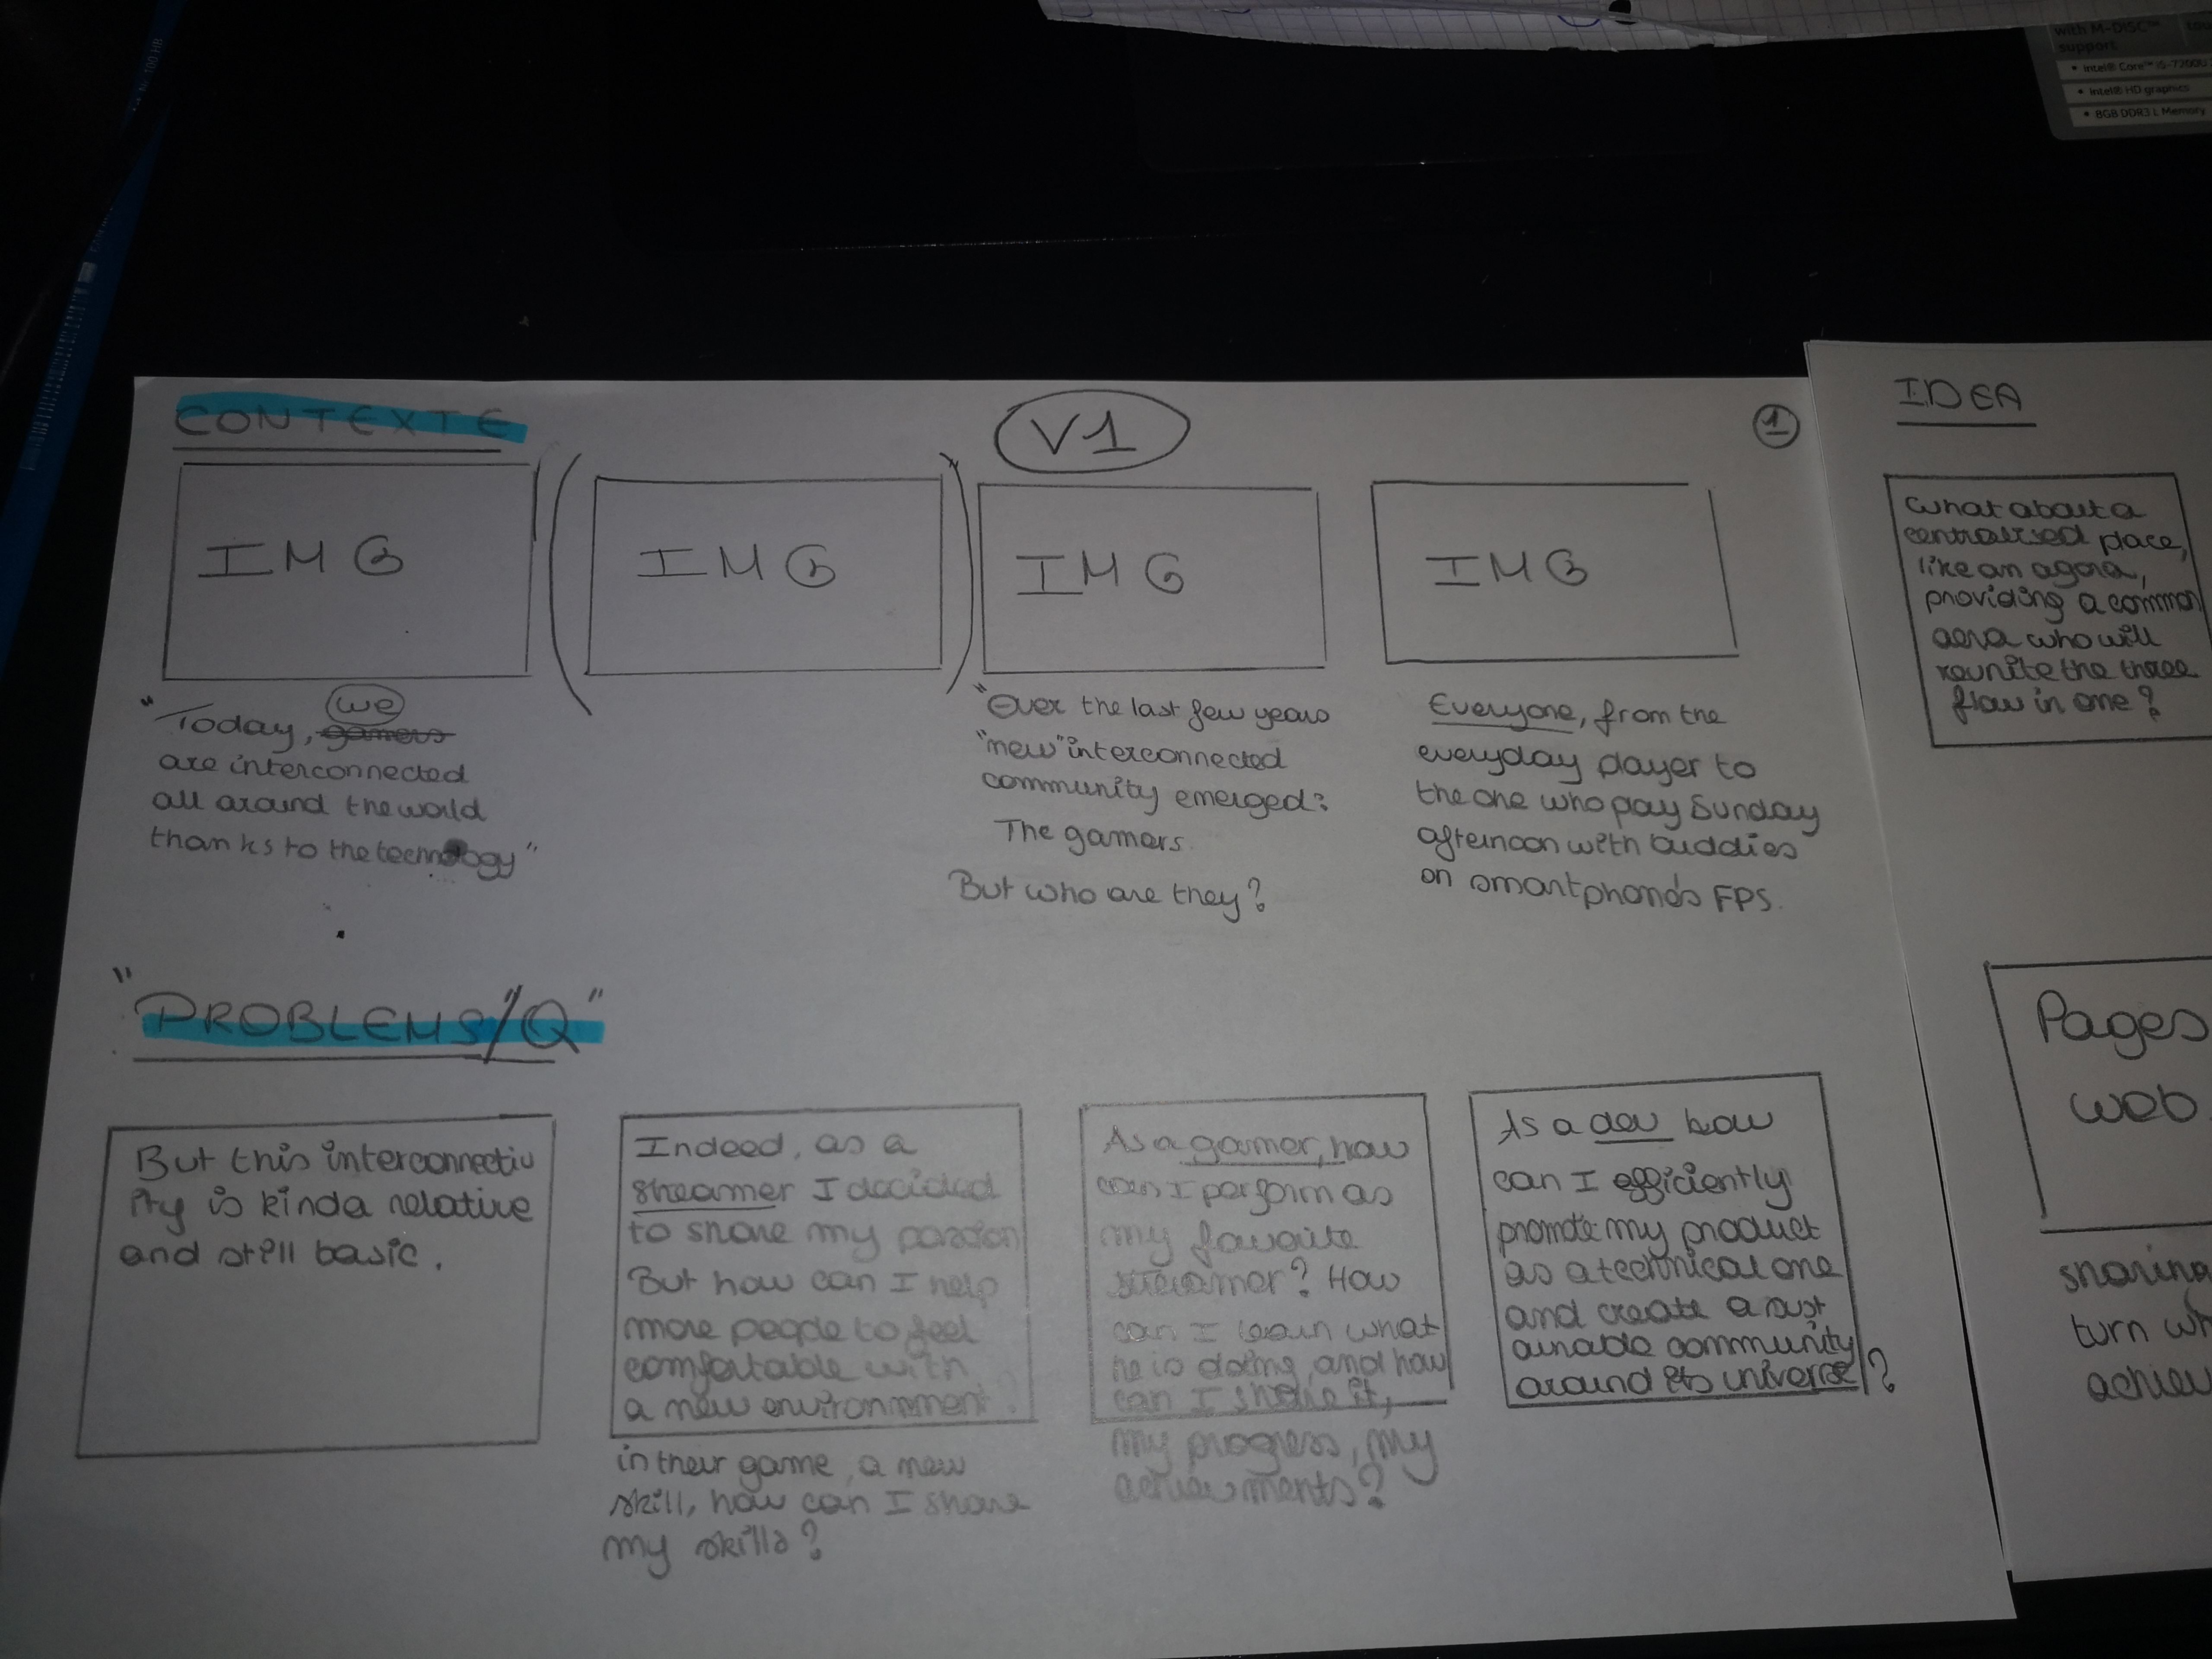 with M-DISC™
support
• Intel® Core™ i5-7200U
• Intel® HD graphics
• 8GB DDR3 L Memory
100 HB
CONTEXTE
V1
1
IMG
IMG
IMG
IMG
"Today, we gamers
are interconnected
all around the world
thanks to the technology"
"Over the last few years
"new" interconnected
community emerged:
The gamers.
But who are they?
Everyone, from the
everyday player to
the one who pay Sunday
afternoon with buddies
on smartphone's FPS.
"PROBLEMS/Q"
But this interconnectiv
ity is kinda relative
and still basic.
Indeed, as a
streamer I decided
to share my passion
But how can I help
more people to feel
comfortable with
a new environnment
in their game, a new
skill, how can I share
my skills?
As a gamer, how
can I perform as
my favorite
streamer? How
can I learn what
he is doing, and how
can I share it,
my progress, my
achievments?
As a dev how
can I efficiently
promote my product
as a technical one
and create a sust
ainable community
around its universe?
IDEA
What about a
centralised place,
like an agora,
providing a common
aera who will
reunite the three
flow in one?
Pages
web
sharing
turn wh
achiev